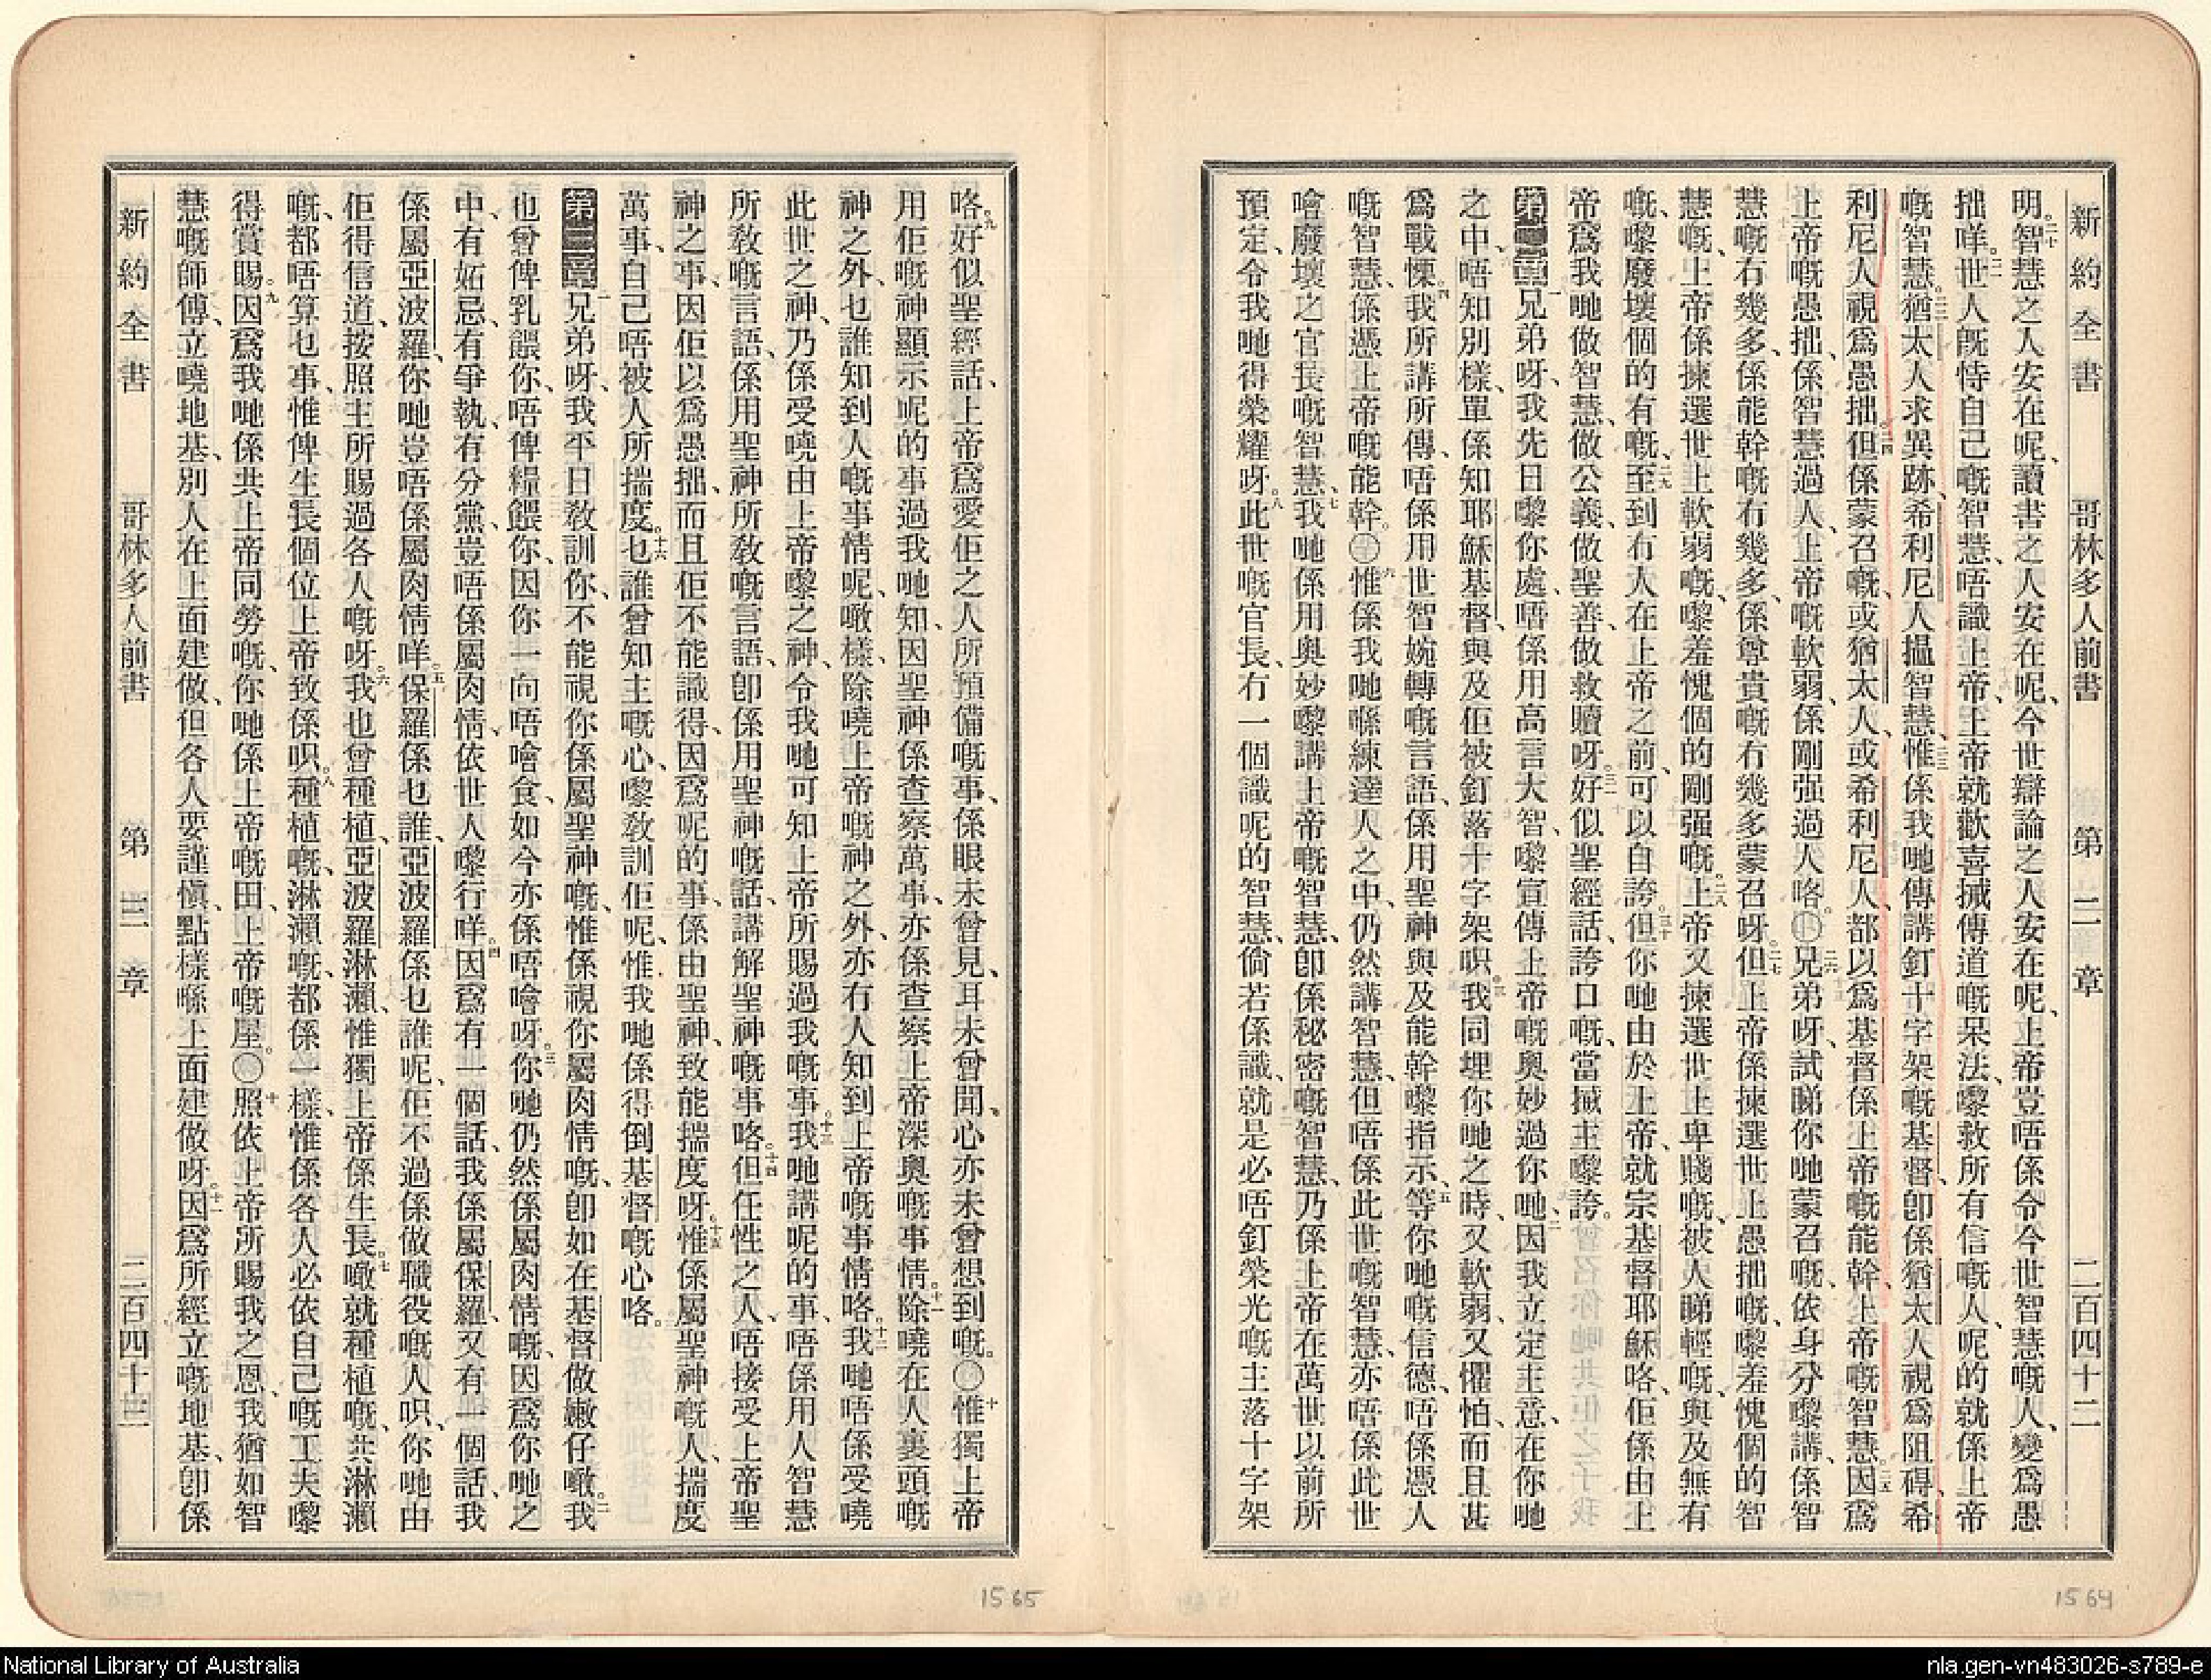 新約全書 哥林多人前書 第二章 二百四十二
明。二十智慧之人安在呢、讀書之人安在呢、今世辯論之人安在呢、上帝豈唔係令今世智慧嘅人、變爲愚
拙咩。二一世人旣恃自己嘅智慧、唔識上帝、上帝就歡喜搣傳道嘅呆法、嚟救所有信嘅人、呢的就係上帝
嘅智慧。二二猶太人求異跡、希利尼人搵智慧、二三惟係我哋傳講釘十字架嘅基督、卽係猶太人視爲阻碍、希
利尼人視爲愚拙。二四但係蒙召嘅、或猶太人、或希利尼人、都以爲基督係上帝嘅能幹、上帝嘅智慧。二五因爲
上帝嘅愚拙、係智慧過人、上帝嘅軟弱、係剛强過人咯。〇二六兄弟呀、試睇你哋蒙召嘅、依身分嚟講、係智
慧嘅冇幾多、係能幹嘅冇幾多、係尊貴嘅冇幾多蒙召呀。二七但上帝係揀選世上愚拙嘅、嚟羞愧個的智
慧嘅、上帝係揀選世上軟弱嘅、嚟羞愧個的剛强嘅。二八上帝又揀選世上卑賤嘅、被人睇輕嘅、與及無有
嘅、嚟廢壞個的有嘅、二九至到冇人在上帝之前、可以自誇。三十但你哋由於上帝、就宗基督耶穌咯、佢係由上
帝爲我哋做智慧、做公義、做聖善、做救贖呀。三一好似聖經話、誇口嘅、當搣主嚟誇。
第二章一兄弟呀、我先日嚟你處、唔係用高言大智、嚟宣傳上帝嘅奧妙過你哋、二因我立定主意、在你哋
之中、唔知別樣、單係知耶穌基督、與及佢被釘落十字架呮。三我同埋你哋之時、又軟弱、又懼怕、而且甚
爲戰慄。四我所講所傳、唔係用世智婉轉嘅言語、係用聖神與及能幹嚟指示、五等你哋嘅信德、唔係憑人
嘅智慧、係憑上帝嘅能幹。〇六惟係我哋喺練達人之中、仍然講智慧、但唔係此世嘅智慧、亦唔係此世
噲廢壞之官長嘅智慧、七我哋係用奧妙嚟講上帝嘅智慧、卽係秘密嘅智慧、乃係上帝在萬世以前所
預定、令我哋得榮耀呀。八此世嘅官長、冇一個識呢的智慧、倘若係識、就是必唔釘榮光嘅主落十字架
咯。九好似聖經話、上帝爲愛佢之人所預備嘅事、係眼未曾見、耳未曾聞、心亦未曾想到嘅。〇十惟獨上帝
用佢嘅神顯示呢的事過我哋知、因聖神係查察萬事、亦係查察上帝深奧嘅事情。十一除嘵在人裏頭嘅
神之外、乜誰知到人嘅事情呢、噉樣、除嘵上帝嘅神之外、亦冇人知到上帝嘅事情咯。十二我哋唔係受嘵
此世之神、乃係受嘵由上帝嚟之神、令我哋可知上帝所賜過我嘅事。十三我哋講呢的事、唔係用人智慧
所敎嘅言語、係用聖神所敎嘅言語、卽係用聖神嘅話、講解聖神嘅事咯。十四但任性之人、唔接受上帝聖
神之事、因佢以爲愚拙、而且佢不能識得、因爲呢的事、係由聖神、致能揣度呀。十五惟係屬聖神嘅人、揣度
萬事、自己唔被人所揣度。十六乜誰曾知主嘅心、嚟敎訓佢呢、惟我哋係得倒基督嘅心咯。
第三章一兄弟呀、我平日敎訓你、不能視你係屬聖神嘅、惟係視你屬肉情嘅、卽如在基督做嫩仔噉。二我
也曾俾乳餵你、唔俾糧餵你、因你一向唔噲食、如今亦係唔噲呀。三你哋仍然係屬肉情嘅、因爲你哋之
中、有妬忌、有爭執、有分黨、豈唔係屬肉情、依世人嚟行咩。四因爲有一個話、我係屬保羅、又有一個話、我
係屬亞波羅、你哋豈唔係屬肉情咩。五保羅係乜誰、亞波羅係乜誰呢、佢不過係做職役嘅人呮、你哋由
佢得信道、按照主所賜過各人嘅呀。六我也曾種植、亞波羅淋灑、惟獨上帝係生長。七噉就種植嘅、共淋灑
嘅、都唔算乜事、惟俾生長個位上帝、致係呮。八種植嘅、淋灑嘅、都係一樣、惟係各人必依自己嘅工夫嚟
得賞賜。九因爲我哋係共上帝同勞嘅、你哋係上帝嘅田、上帝嘅屋。〇十照依上帝所賜我之恩、我猶如智
慧嘅師傅、立嘵地基、別人在上面建做、但各人要謹愼、點樣喺上面建做呀。十一因爲所經立嘅地基、卽係
新約全書 哥林多人前書 第三章 二百四十三
1565
1564
National Library of Australia
nla.gen-vn483026-s789-e